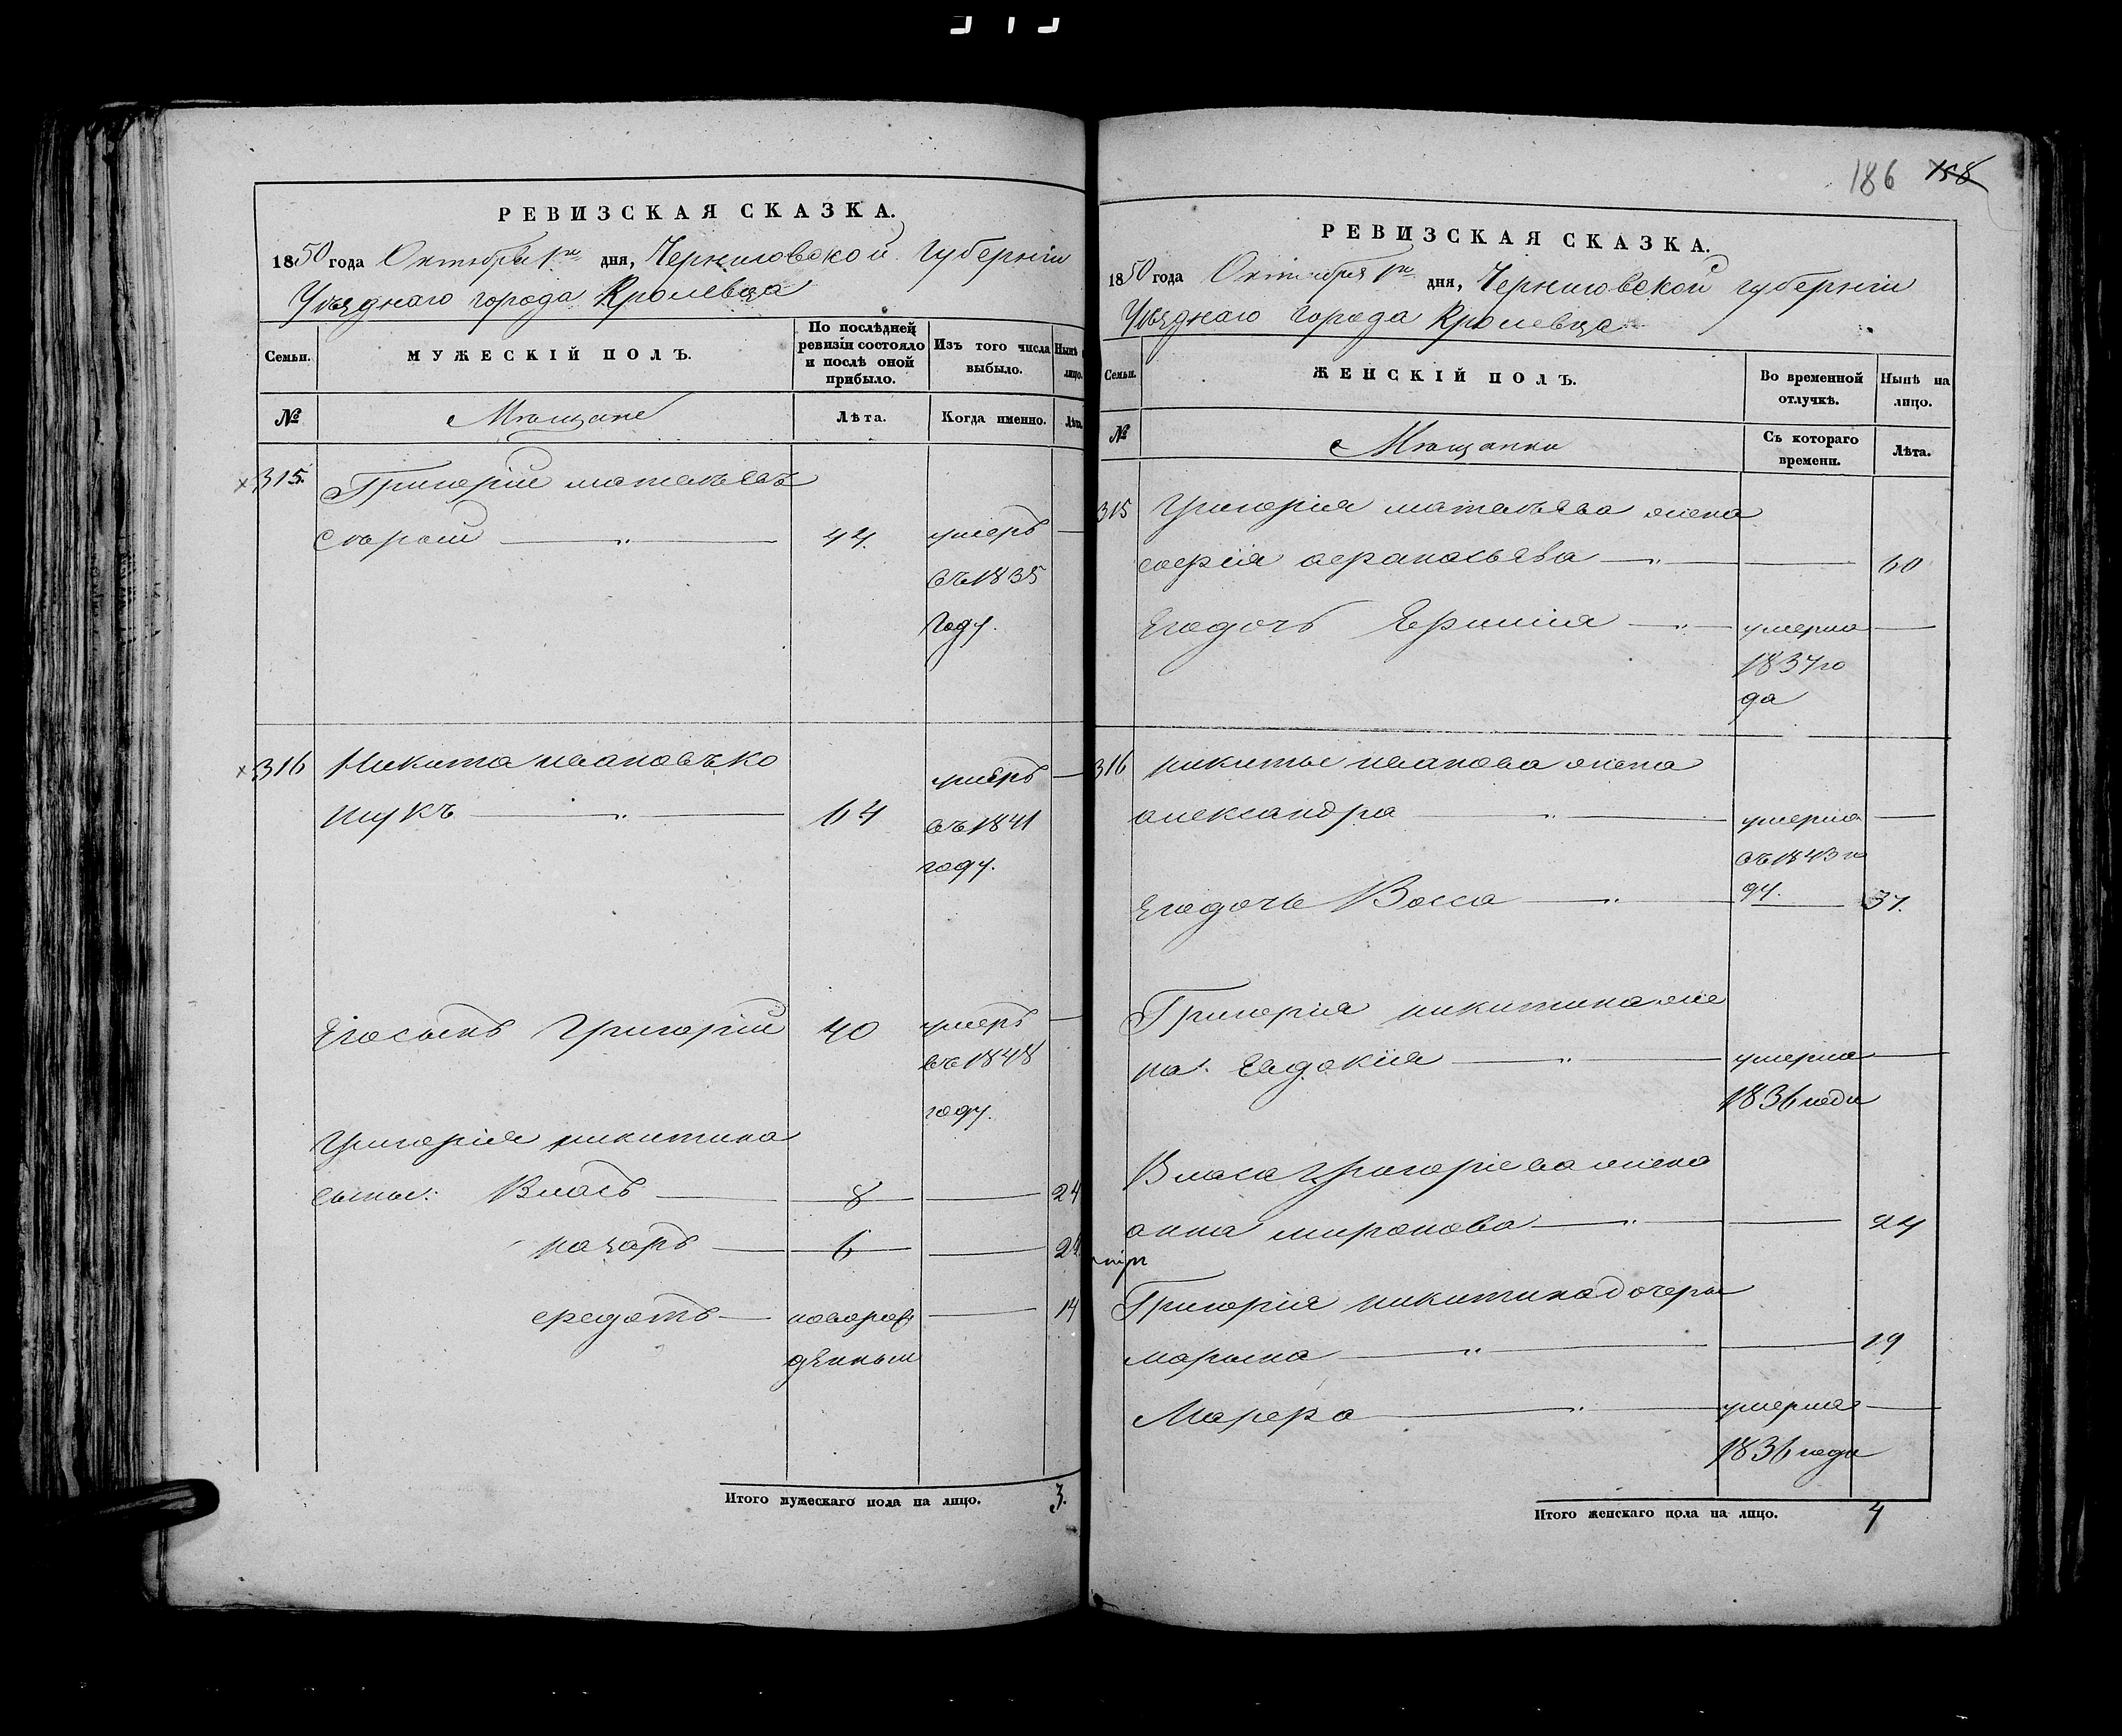 РЕВИЗСКАЯ СКАЗКА.
1850 года Октября 1го дня, Черниговской Губернiи
Уѣзднаго города Кролевца
Семьи.
МУЖЕСКІЙ ПОЛЪ.
По послѣдней ревизіи состояло и послѣ оной прибыло.
Изъ того числа выбыло.
Нынѣ
лицо.
№
Мѣщане
Лѣта.
Когда именно.
Лѣта.
315. Григорій Матвѣевъ
44. умеръ —
въ 1835
году.
316 Никита Ивановъ Ко
умеръ —
шукъ — 64
въ 1841
году.
Его сынъ Григорій 40 умеръ —
въ 1848
году.
Григорія Никитина
сыны: Власъ — 8 — 24
Назаръ — 6 — 22
Федотъ — новорож — 14
денный
Итого мужескаго пола на лицо. 3.
186 158
РЕВИЗСКАЯ СКАЗКА.
1850 года Октября 1го дня, Черниговской губерніи
Уѣзднаго города Кролевца
Семьи.
ЖЕНСКІЙ ПОЛЪ.
Во временной отлучкѣ.
Нынѣ на лицо.
№
Мѣщанки
Съ котораго времени.
Лѣта.
315 Григорія Матвѣева жена
Софія Афанасьева — — 60
Его дочь — умерла —
1837 го
да
316 Никиты Иванова жена
Александра — умерла —
въ 1843 го
ду.
Его дочь Васса — — 37.
Григорія Никитина же
на Евдокія — умерла —
1836 года
Власа Григоріева жена
Анна Миронова — — 24
Григорія Никитина дочеры
Марына — — 19
Марфа — умерла —
1836 года
Итого женскаго пола на лицо. 4